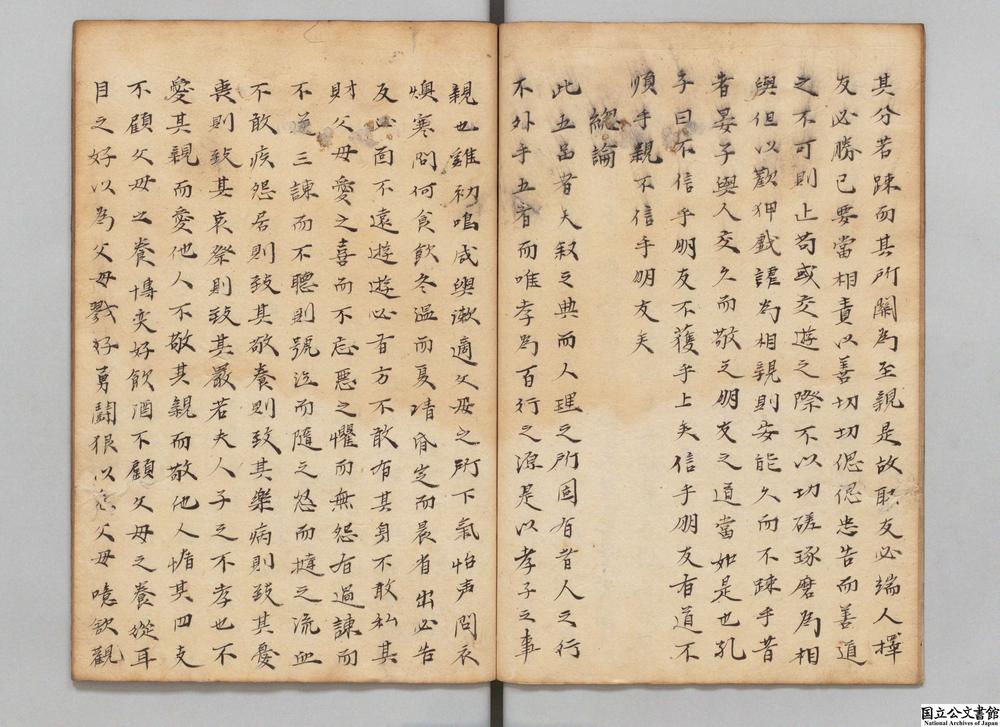 其分若踈而其所關為至親是故取友必端人擇
友必勝己要當相責以善切切偲偲忠告而善道
之不可則止苟或交遊之際不以切磋琢磨為相
與但以歡狎戲謔為相親則安能久而不踈乎昔
者晏子與人交久而敬之朋友之道當如是也孔
子曰不信乎朋友不獲乎上矣信乎朋友有道不
順乎親不信乎朋友矣
總論
此五品者天叙之典而人理之所固有者人之行
不外乎五者而唯孝為百行之源是以孝子之事
親也雞初鳴咸與漱適父母之所下氣怡声問衣
燠寒問何食飲冬溫而夏凊昏定而晨省出必告
反必面不遠遊遊必有方不敢有其身不敢私其
財父母愛之喜而不忘惡之懼而無怨有過諫而
不逆三諫而不聽則號泣而隨之怒而撻之流血
不敢疾怨居則致其敬養則致其樂病則致其憂
喪則致其哀祭則致其嚴若夫人子之不孝也不
愛其親而愛他人不敬其親而敬他人惰其四支
不顧父母之養博奕好飲酒不顧父母之養從耳
目之好以為父母戮好勇鬪狠以危父母噫欲觀
国立公文書館
National Archives of Japan